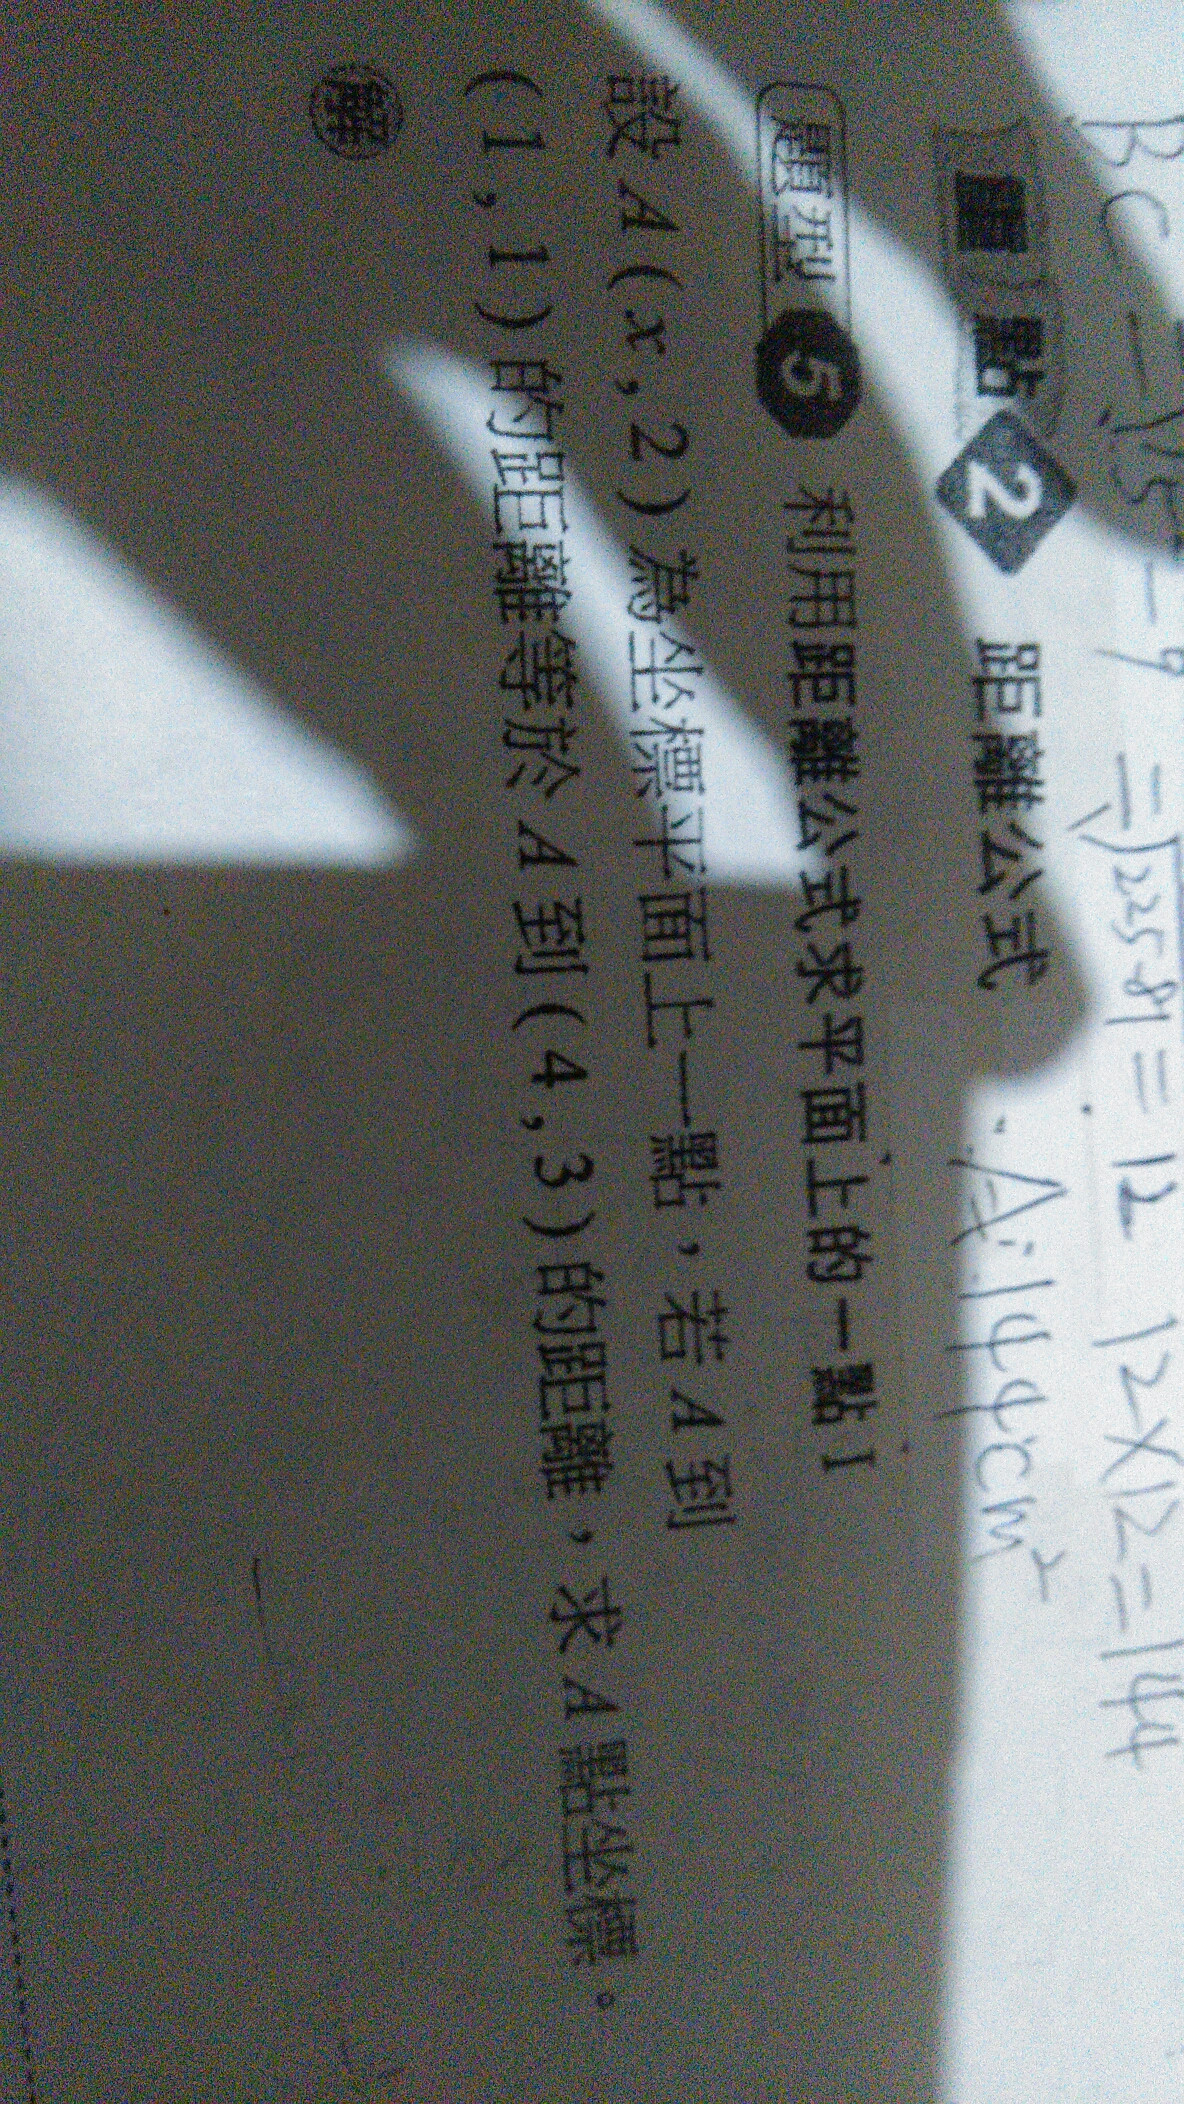 BC=√15²-9²=√225-81=12 12×12=144
A:144cm²
重點2 距離公式
題型5 利用距離公式求平面上的一點 I
設 A(x,2)為坐標平面上一點,若 A 到
(1,1)的距離等於 A 到(4,3)的距離,求 A 點坐標。
解